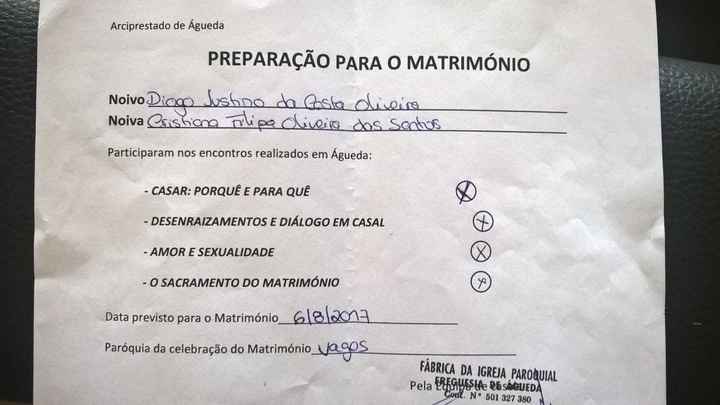 Arciprestado de Águeda
PREPARAÇÃO PARA O MATRIMÓNIO
Noivo Diogo Justino da Costa Oliveira
Noiva Cristiana Filipa Oliveira dos Santos
Participaram nos encontros realizados em Águeda:
- CASAR: PORQUÊ E PARA QUÊ
- DESENRAIZAMENTOS E DIÁLOGO EM CASAL
- AMOR E SEXUALIDADE
- O SACRAMENTO DO MATRIMÓNIO
Data previsto para o Matrimónio 6/8/2017
Paróquia da celebração do Matrimónio Vagos
FÁBRICA DA IGREJA PAROQUIAL
FREGUESIA DE AGUEDA
Pela Equipa de
Cont. Nº 501 327 380